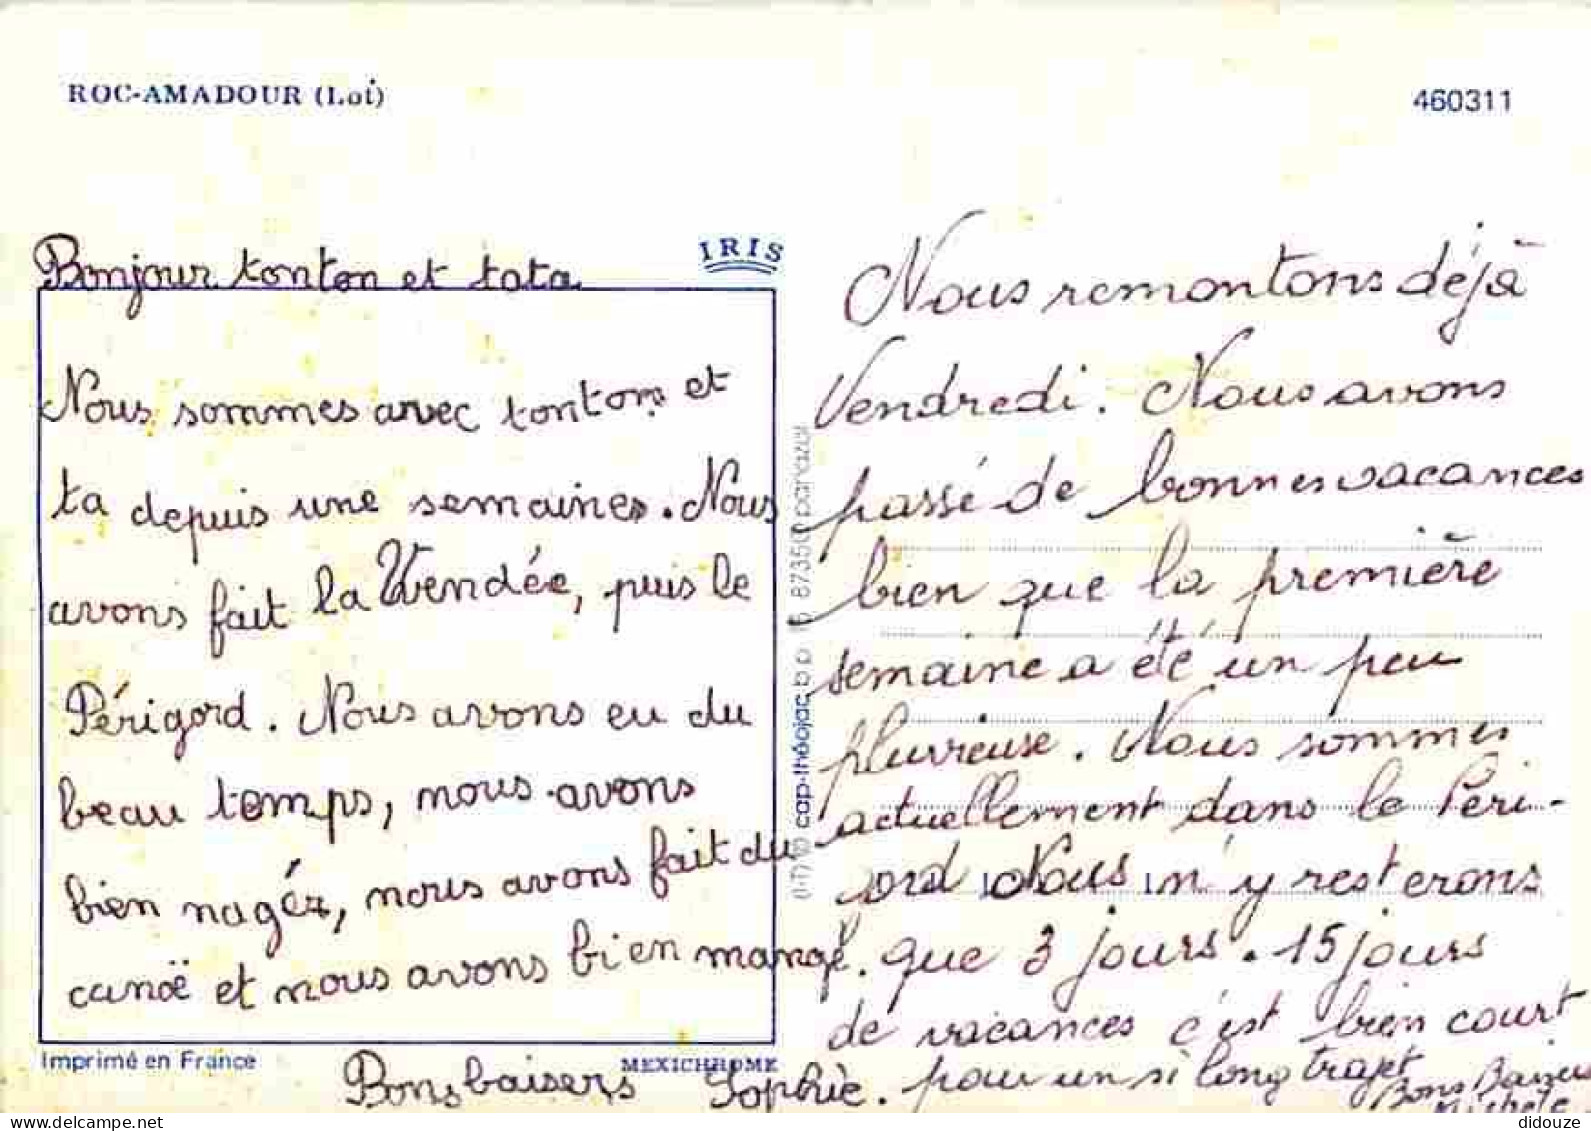 ROC-AMADOUR (Lot)
460311
IRIS
Bonjour tonton et tata
Nous sommes avec tonton et
ta depuis une semaines. Nous
avons fait la Vendée, puis le
Périgord. Nous avons eu du
beau temps, nous avons
bien nagéz, nous avons fait du
canoë et nous avons bien mangé.
Bons baisers Sophie.
Imprimé en France
MEXICHROME
cap-théojac b p 15 87350 panazol
Nous remontons déjà
Vendredi. Nous avons
passé de bonnes vacances
bien que la première
semaine a été un peu
pluvieuse. Nous sommes
actuellement dans le Péri-
ord Nous n'y resterons
que 3 jours. 15 jours
de vacances c'est bien court
pour un si long trajet
Bons Baisers
Michèle
didouze